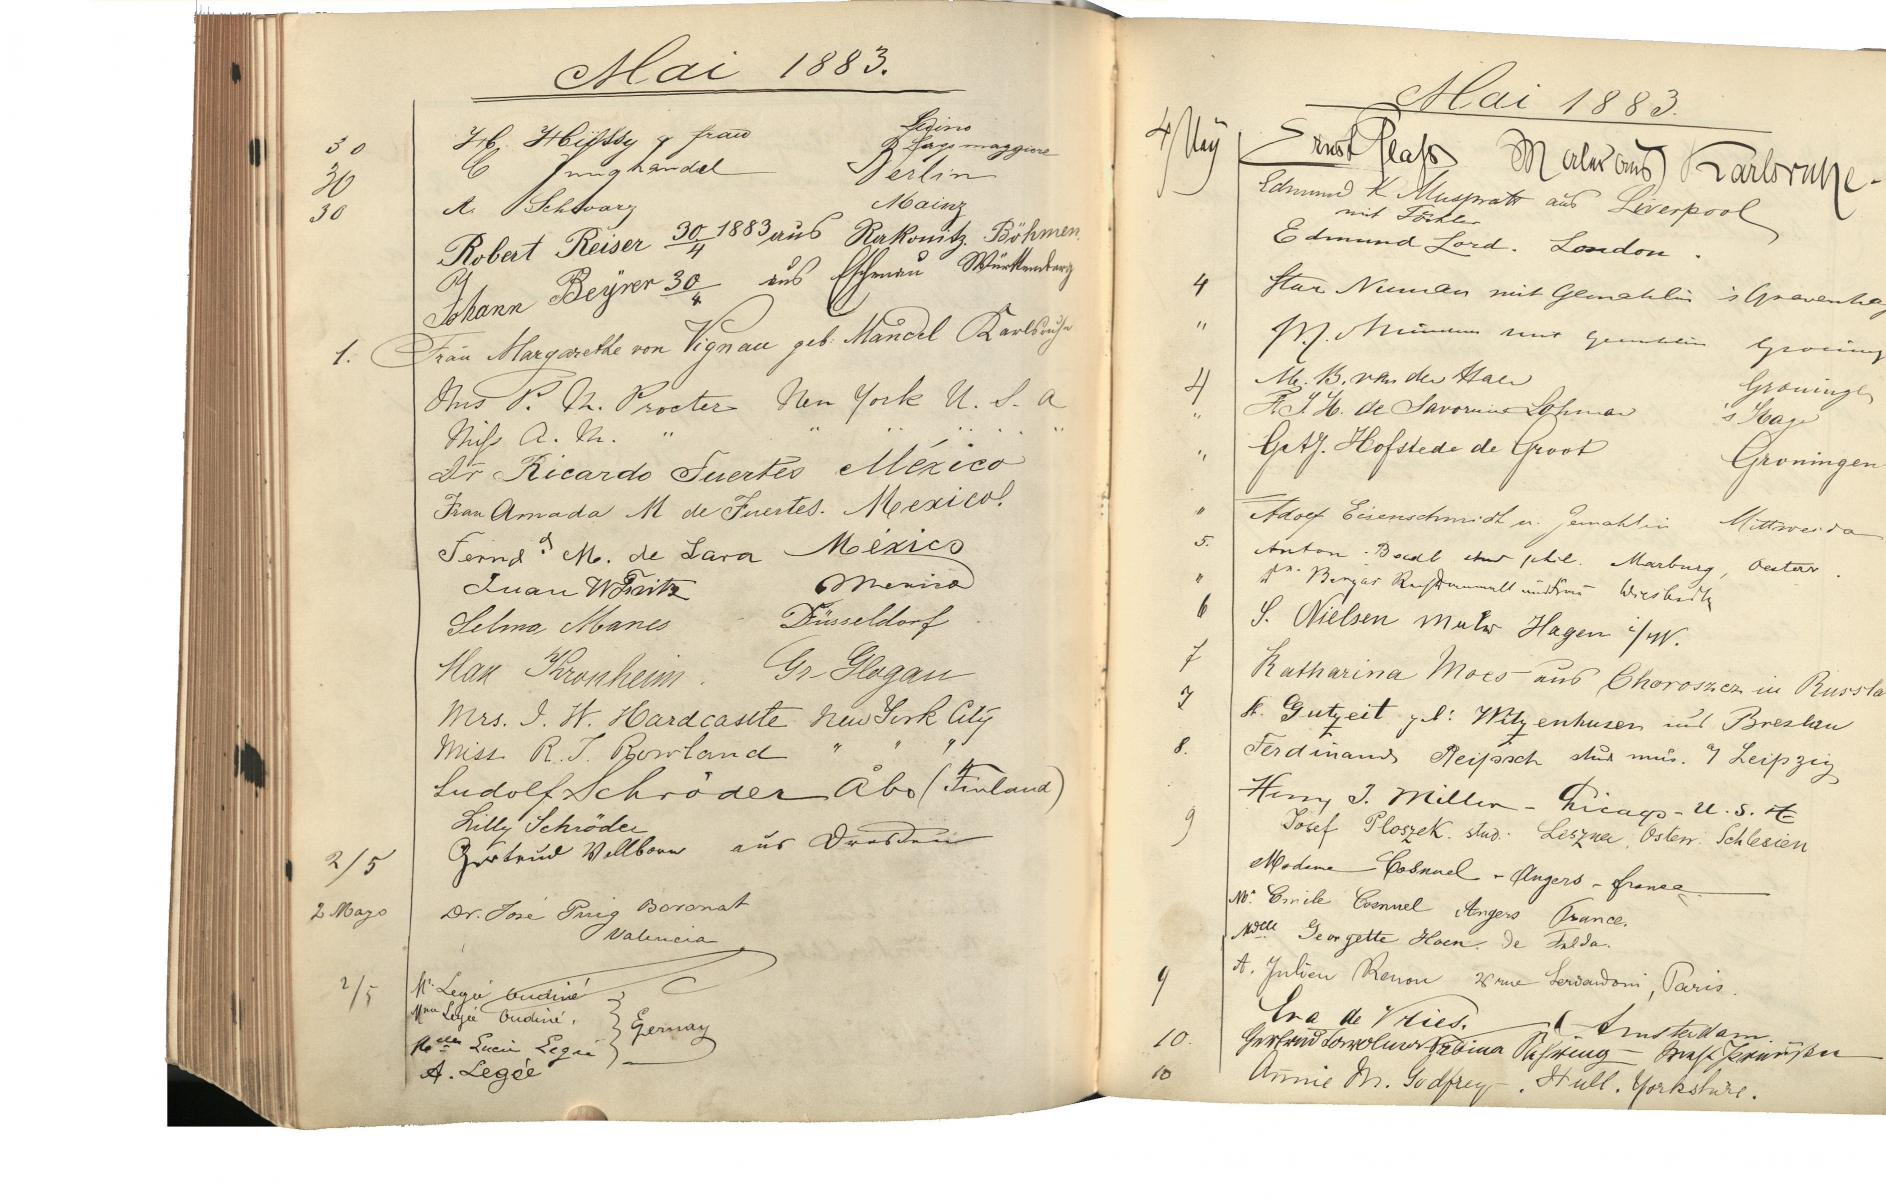 Mai 1883.
30 & frau
Lago maggiore
30 C Junghändel Berlin
30 A. Schwarz Mainz
Robert Reiser 30/4 1883 aus Rakonitz Böhmen.
Johann Beÿrer 30/4 aus Eschenau Württemberg
1. Frau Margarethe von Vignau geb. Mandel Karlsruhe
P. M. Procter New York U. S. A
Miss A. M. " " " " "
Dr Ricardo Fuertes México
Frau Amada M de Fuertes. Mexico.
Fernd. M. de Lara México
Juan W Fritz Mexico
Selma Manes Düsseldorf
Max Kronheim. Gr Glogau
Mrs. J. W. Hardcastle New York City
Miss R. T. Rowland " " "
Ludolf Schröder Åbo (Finland)
Lilly Schröder
2/5 Gertrud Wellborn aus Dresden
2 Mayo Dr. José Puig Boronat
Valencia
2/5 Mr Legée Oudiné
Mme Legée Oudiné.
Melle Lucie Legée
A. Legée
Mai 1883.
4/ Maÿ Ernst Maler aus Karlsruhe
Edmund K Muspratt aus Liverpool
mit Töchter
Edmund Lord. London.
4 Numan mit Gemahlin 's Gravenha
" mit Gemahlin
4 B. van der Groningen
" de Savornin Lohman 's Hage
" Hofstede de Groot Groningen
" Adolf Eisenschmidt u. Gemahlin Mittweida
5. Anton phil. Marburg, Oesterr.
" Dr. Rechtsanwalt und Frau Wiesbaden
6 S. Nielsen Maler Hagen i/W.
7 Katharina Moes aus Choroszcz in Russla
7 Gutzeit geb: Witzenhusen aus Breslau
8. Ferdinand stud mus. a/ Leipzig
Henry J. Miller - Chicago - U. S. A
9 Josef Ploszek. stud. Leszna, Österr. Schlesien
Madame Cosnuel - Angers - france
Mr. Emile Cosnuel Angers France.
Mdelle Georgette Haen. de Fulda.
9 A. Julien Renou rue Servandoni, Paris.
Eva de Vries. Amsterdam
10. Gertrud
10 Annie M. Godfrey. Hull. Yorkshire.